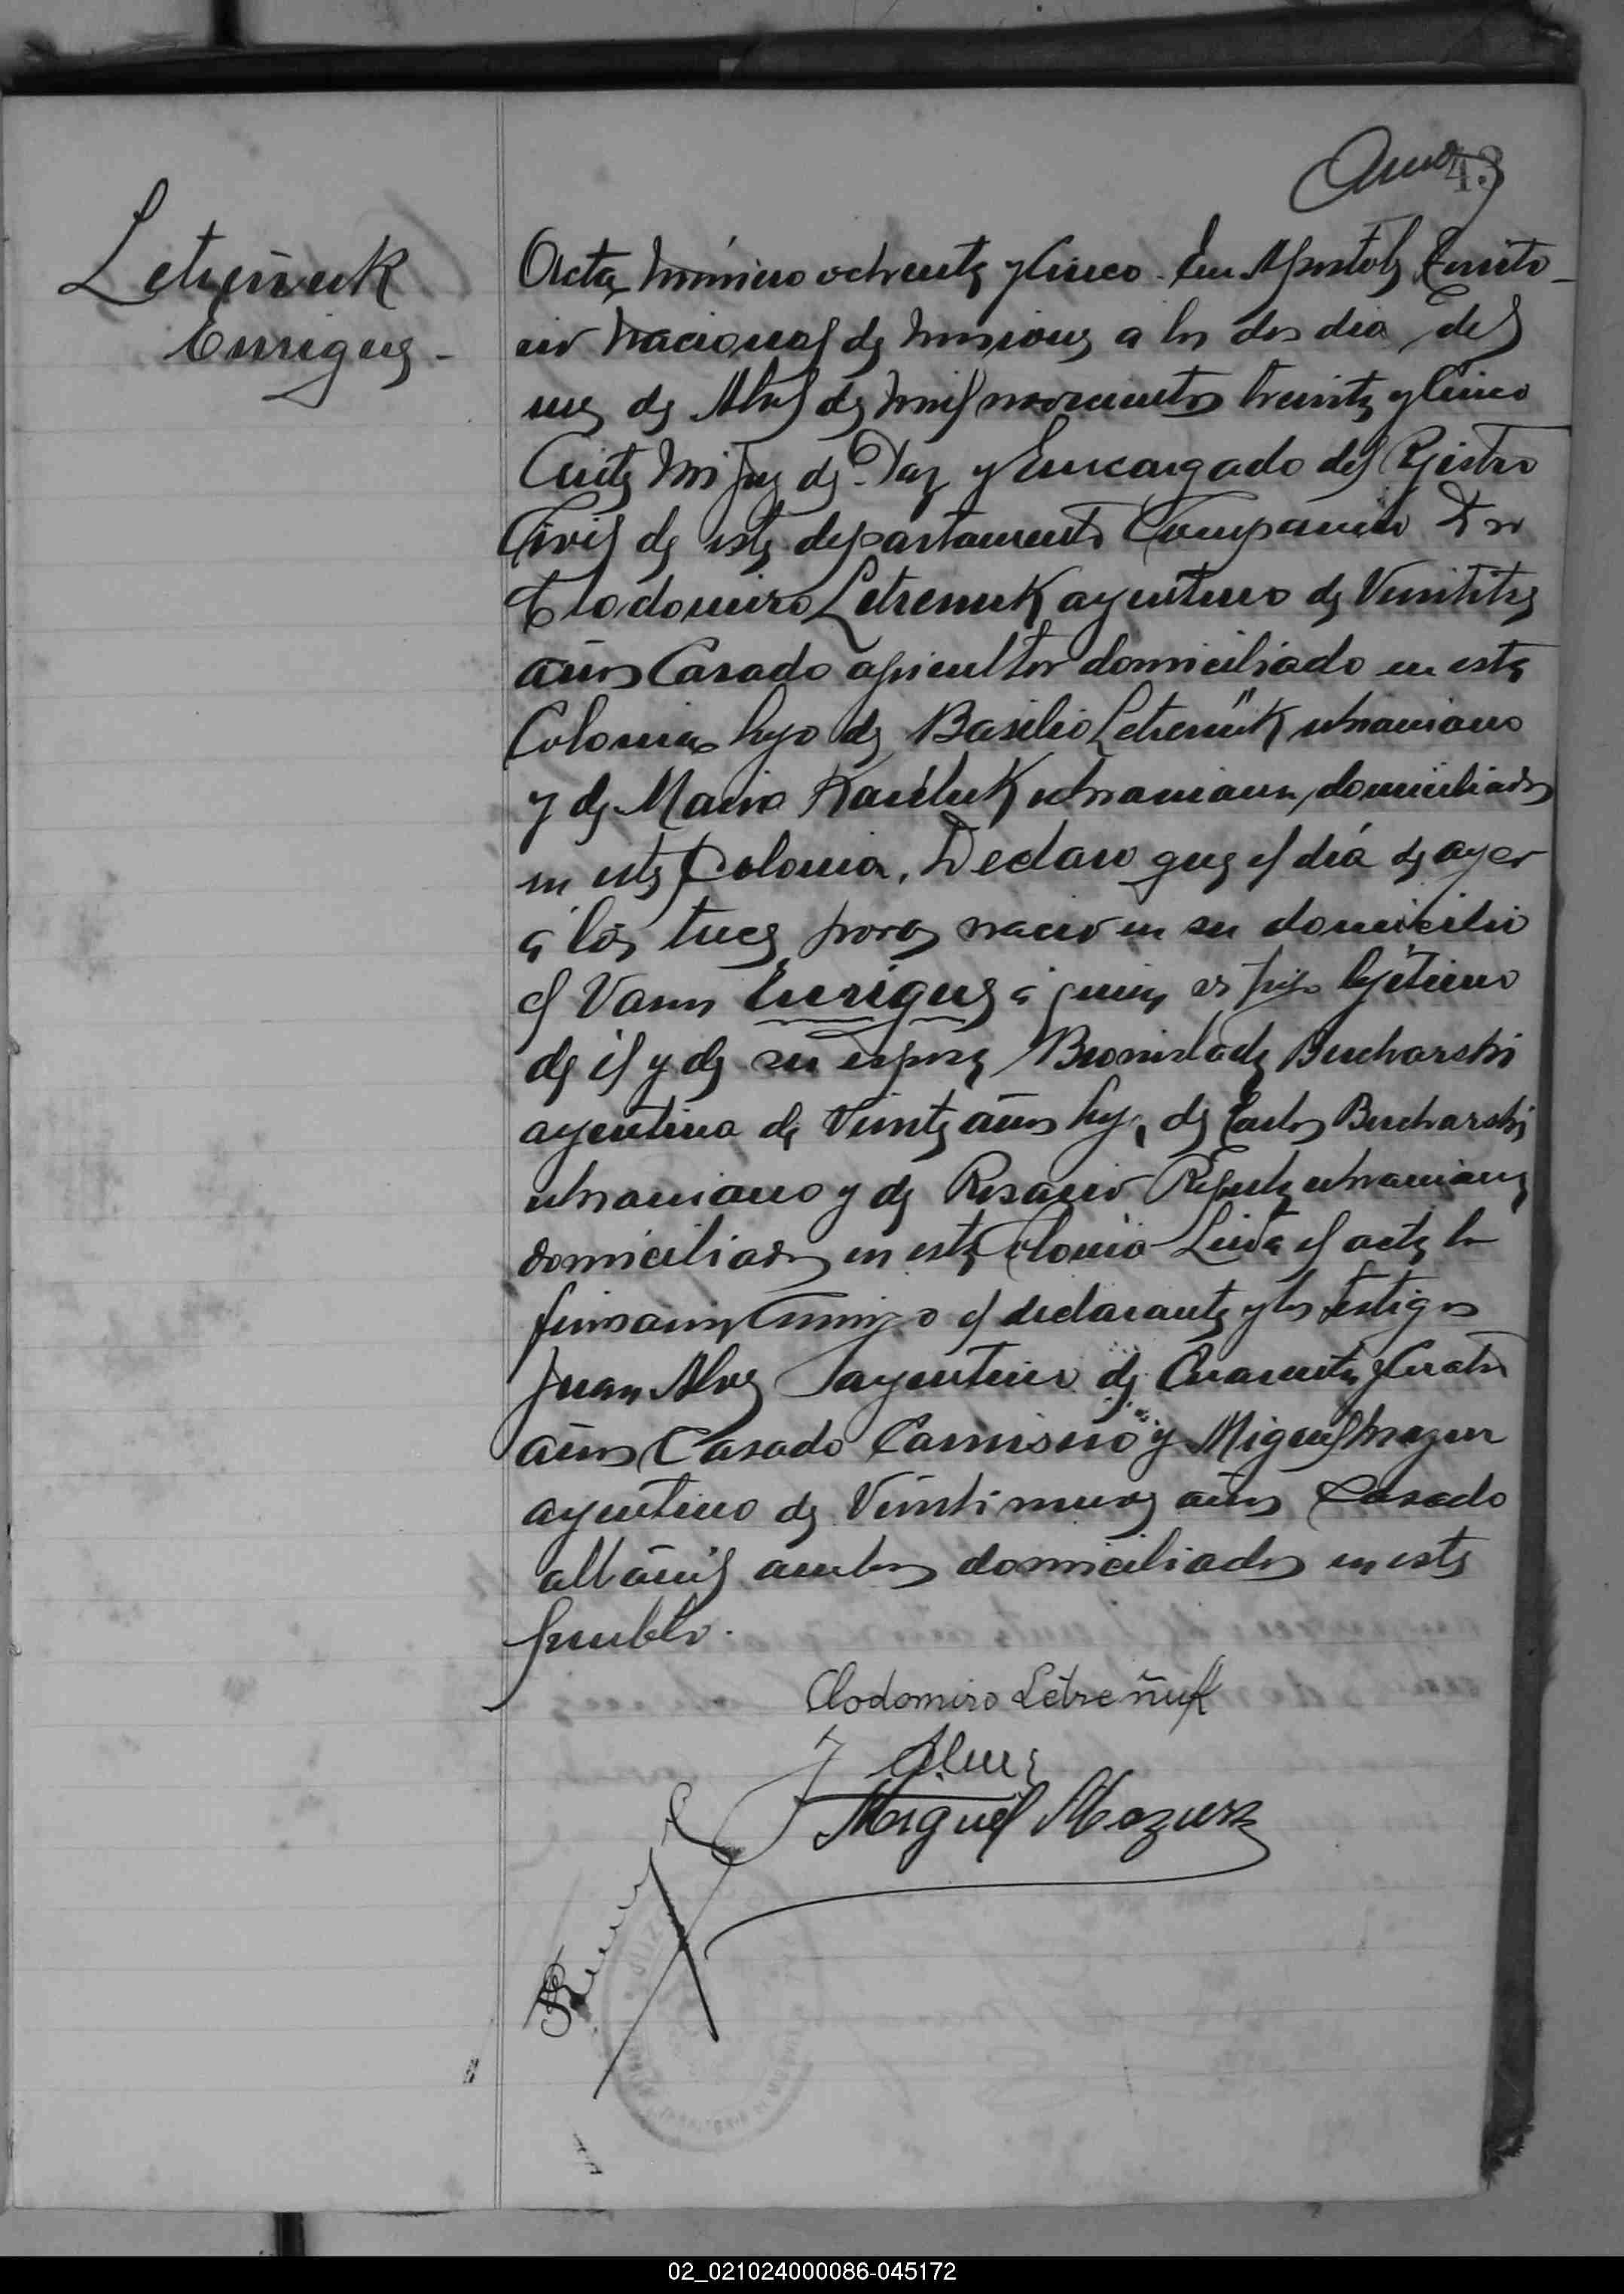 43
Letreñuk
Enrique -
Acta Número ochenta y Cinco. En Apostoles Territo-
rio Nacional de Misiones a los dos dia del
mes de Abril de mil novecientos treinta y Cinco
Ante Mi Juez de Paz y Encargado del Rejistro
Civil de este departamento Comparecio Dn
Clodomiro Letrenuk argentino de Veintitres
años Casado agricultor domiciliado en esta
Colonia hijo de Basilio Letreñuk ukraniano
y de Maria ukraniana, domiciliados
en esta Colonia, Declaro que el día de ayer
á las trece horas nacio en su domicilio
el Varon Enrique á quien es hijo lejitimo
de él y de su esposa Bronislada Bucharski
argentina de Veinte años hija de Carlos Bucharski
ukraniano y de Rosario ukraniana
domiciliados en esta Colonia Leida el acta la
firmaron Conmigo el declarante y los testigos
Juan Alvez argentino de Cuarenta y Cuatro
años Casado y Miguel Mazur
argentino de Veintinueve años Casado
albañil ambos domiciliados en este
pueblo.
Clodomiro Letreñuk
J Alvez
Miguel Mazur
02_021024000086-045172